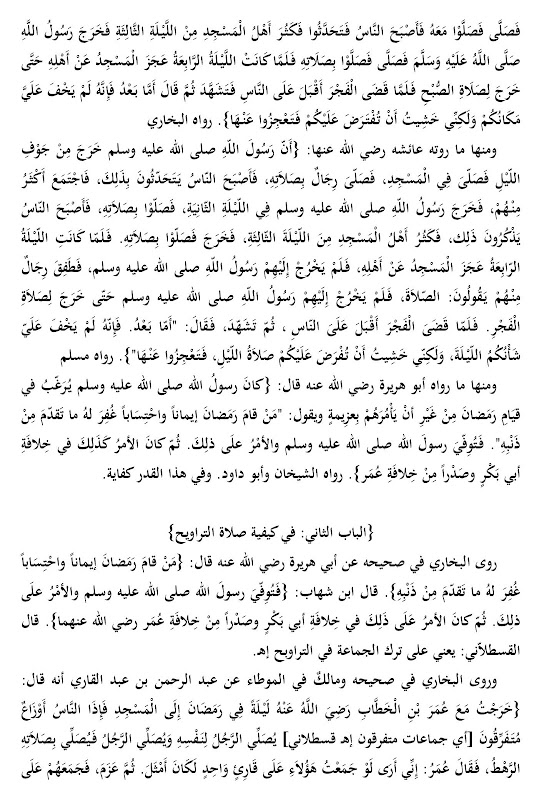 فَصَلَّى فَصَلَّوْا مَعَهُ فَأَصْبَحَ النَّاسُ فَتَحَدَّثُوا فَكَثُرَ أَهْلُ الْمَسْجِدِ مِنْ اللَّيْلَةِ الثَّالِثَةِ فَخَرَجَ رَسُولُ اللَّهِ
صَلَّى اللَّهُ عَلَيْهِ وَسَلَّمَ فَصَلَّى فَصَلَّوْا بِصَلَاتِهِ فَلَمَّا كَانَتْ اللَّيْلَةُ الرَّابِعَةُ عَجَزَ الْمَسْجِدُ عَنْ أَهْلِهِ حَتَّى
خَرَجَ لِصَلَاةِ الصُّبْحِ فَلَمَّا قَضَى الْفَجْرَ أَقْبَلَ عَلَى النَّاسِ فَتَشَهَّدَ ثُمَّ قَالَ أَمَّا بَعْدُ فَإِنَّهُ لَمْ يَخْفَ عَلَيَّ
مَكَانُكُمْ وَلَكِنِّي خَشِيتُ أَنْ تُفْتَرَضَ عَلَيْكُمْ فَتَعْجِزُوا عَنْهَا}. رواه البخاري
ومنها ما روته عائشه رضي الله عنها: {أَنّ رَسُولَ اللّهِ صلى الله عليه وسلم خَرَجَ مِنْ جَوْفِ
اللّيْلِ فَصَلّىَ فِي الْمَسْجِدِ، فَصَلّىَ رِجَالٌ بِصَلاَتِهِ، فَأَصْبَحَ النّاسُ يَتَحَدّثُونَ بِذَلِكَ، فَاجْتَمَعَ أَكْثَرُ
مِنْهُمْ، فَخَرَجَ رَسُولُ اللّهِ صلى الله عليه وسلم فِي اللّيْلَةِ الثّانِيَةِ، فَصَلّوْا بِصَلاَتِهِ، فَأَصْبَحَ النّاسُ
يَذْكُرُونَ ذَلِكَ، فَكَثُرَ أَهْلُ الْمَسْجِدِ مِنَ اللّيْلَةَ الثّالِثَةِ، فَخَرَجَ فَصَلّوْا بِصَلاَتِهِ. فَلَمّا كَانَتِ اللّيْلَةُ
الرّابِعَةُ عَجَزَ الْمَسْجِدُ عَنْ أَهْلِهِ، فَلَمْ يَخْرُجْ إِلَيْهِمْ رَسُولُ اللّهِ صلى الله عليه وسلم، فَطَفِقَ رِجَالٌ
مِنْهُمْ يَقُولُونَ: الصّلاَةَ، فَلَمْ يَخْرُجْ إِلَيْهِمْ رَسُولُ اللّهِ صلى الله عليه وسلم حَتّىَ خَرَجَ لِصَلاَةِ
الْفَجْرِ. فَلَمّا قَضَىَ الْفَجْرَ أَقْبَلَ عَلَىَ النّاسِ، ثُمّ تَشَهّدَ، فَقَالَ: "أَمّا بَعْدُ. فَإِنّهُ لَمْ يَخْفَ عَلَيّ
شَأْنُكُمُ اللّيْلَةَ، وَلَكِنّي خَشِيتُ أَنْ تُفْرَضَ عَلَيْكُمْ صَلاَةُ اللّيْلِ، فَتَعْجِزُوا عَنْهَا"}. رواه مسلم
ومنها ما رواه أبو هريرة رضي الله عنه قال: {كانَ رسولُ الله صلى الله عليه وسلم يُرَغّبُ في
قيَامِ رَمَضَانَ مِنْ غَيْرِ أنْ يَأْمُرَهُمْ بِعزِيمةٍ ويقول: "مَنْ قامَ رَمَضانَ إيماناً واحْتِسَاباً غُفِرَ لهُ ما تَقدّمَ مِنْ
ذَنْبِهِ". فَتُوفّيَ رسولَ الله صلى الله عليه وسلم والأمْرُ علَى ذلِكَ. ثُمّ كانَ الأمرُ كَذَلِكَ في خِلافَةِ
أبي بَكْرٍ وصَدْراً مِنْ خِلافَةِ عُمَر}. رواه الشيخان وأبو داود. وفي هذا القدر كفاية.
{الباب الثاني: في كيفية صلاة التراويح}
روى البخاري في صحيحه عن أبي هريرة رضي الله عنه قال: {مَنْ قامَ رَمَضانَ إيماناً واحْتِسَاباً
غُفِرَ لهُ ما تَقدّمَ مِنْ ذَنْبِهِ}. قال ابن شهاب: {فَتُوفّيَ رسولَ الله صلى الله عليه وسلم والأمْرُ علَى
ذلِكَ. ثُمّ كانَ الأمرُ عَلَى ذَلِكَ في خِلافَةِ أبي بَكْرٍ وصَدْراً مِنْ خِلافَةِ عُمَر رضي الله عنهما}. قال
القسطلاّني: يعني على ترك الجماعة في التراويح إهـ.
وروى البخاري في صحيحه ومالكٌ في الموطاء عن عبد الرحمن بن عبد القاري أنه قال:
{خَرَجْتُ مَعَ عُمَرَ بْنِ الْخَطَّابِ رَضِيَ اللَّهُ عَنْهُ لَيْلَةً فِي رَمَضَانَ إِلَى الْمَسْجِدِ فَإِذَا النَّاسُ أَوْزَاعٌ
مُتَفَرِّقُونَ [أي جماعات متفرقون إهـ قسطلاني] يُصَلِّي الرَّجُلُ لِنَفْسِهِ وَيُصَلِّي الرَّجُلُ فَيُصَلِّي بِصَلَاتِهِ
الرَّهْطُ، فَقَالَ عُمَرُ: إِنِّي أَرَى لَوْ جَمَعْتُ هَؤُلَاءِ عَلَى قَارِئٍ وَاحِدٍ لَكَانَ أَمْثَلَ. ثُمَّ عَزَمَ، فَجَمَعَهُمْ عَلَى